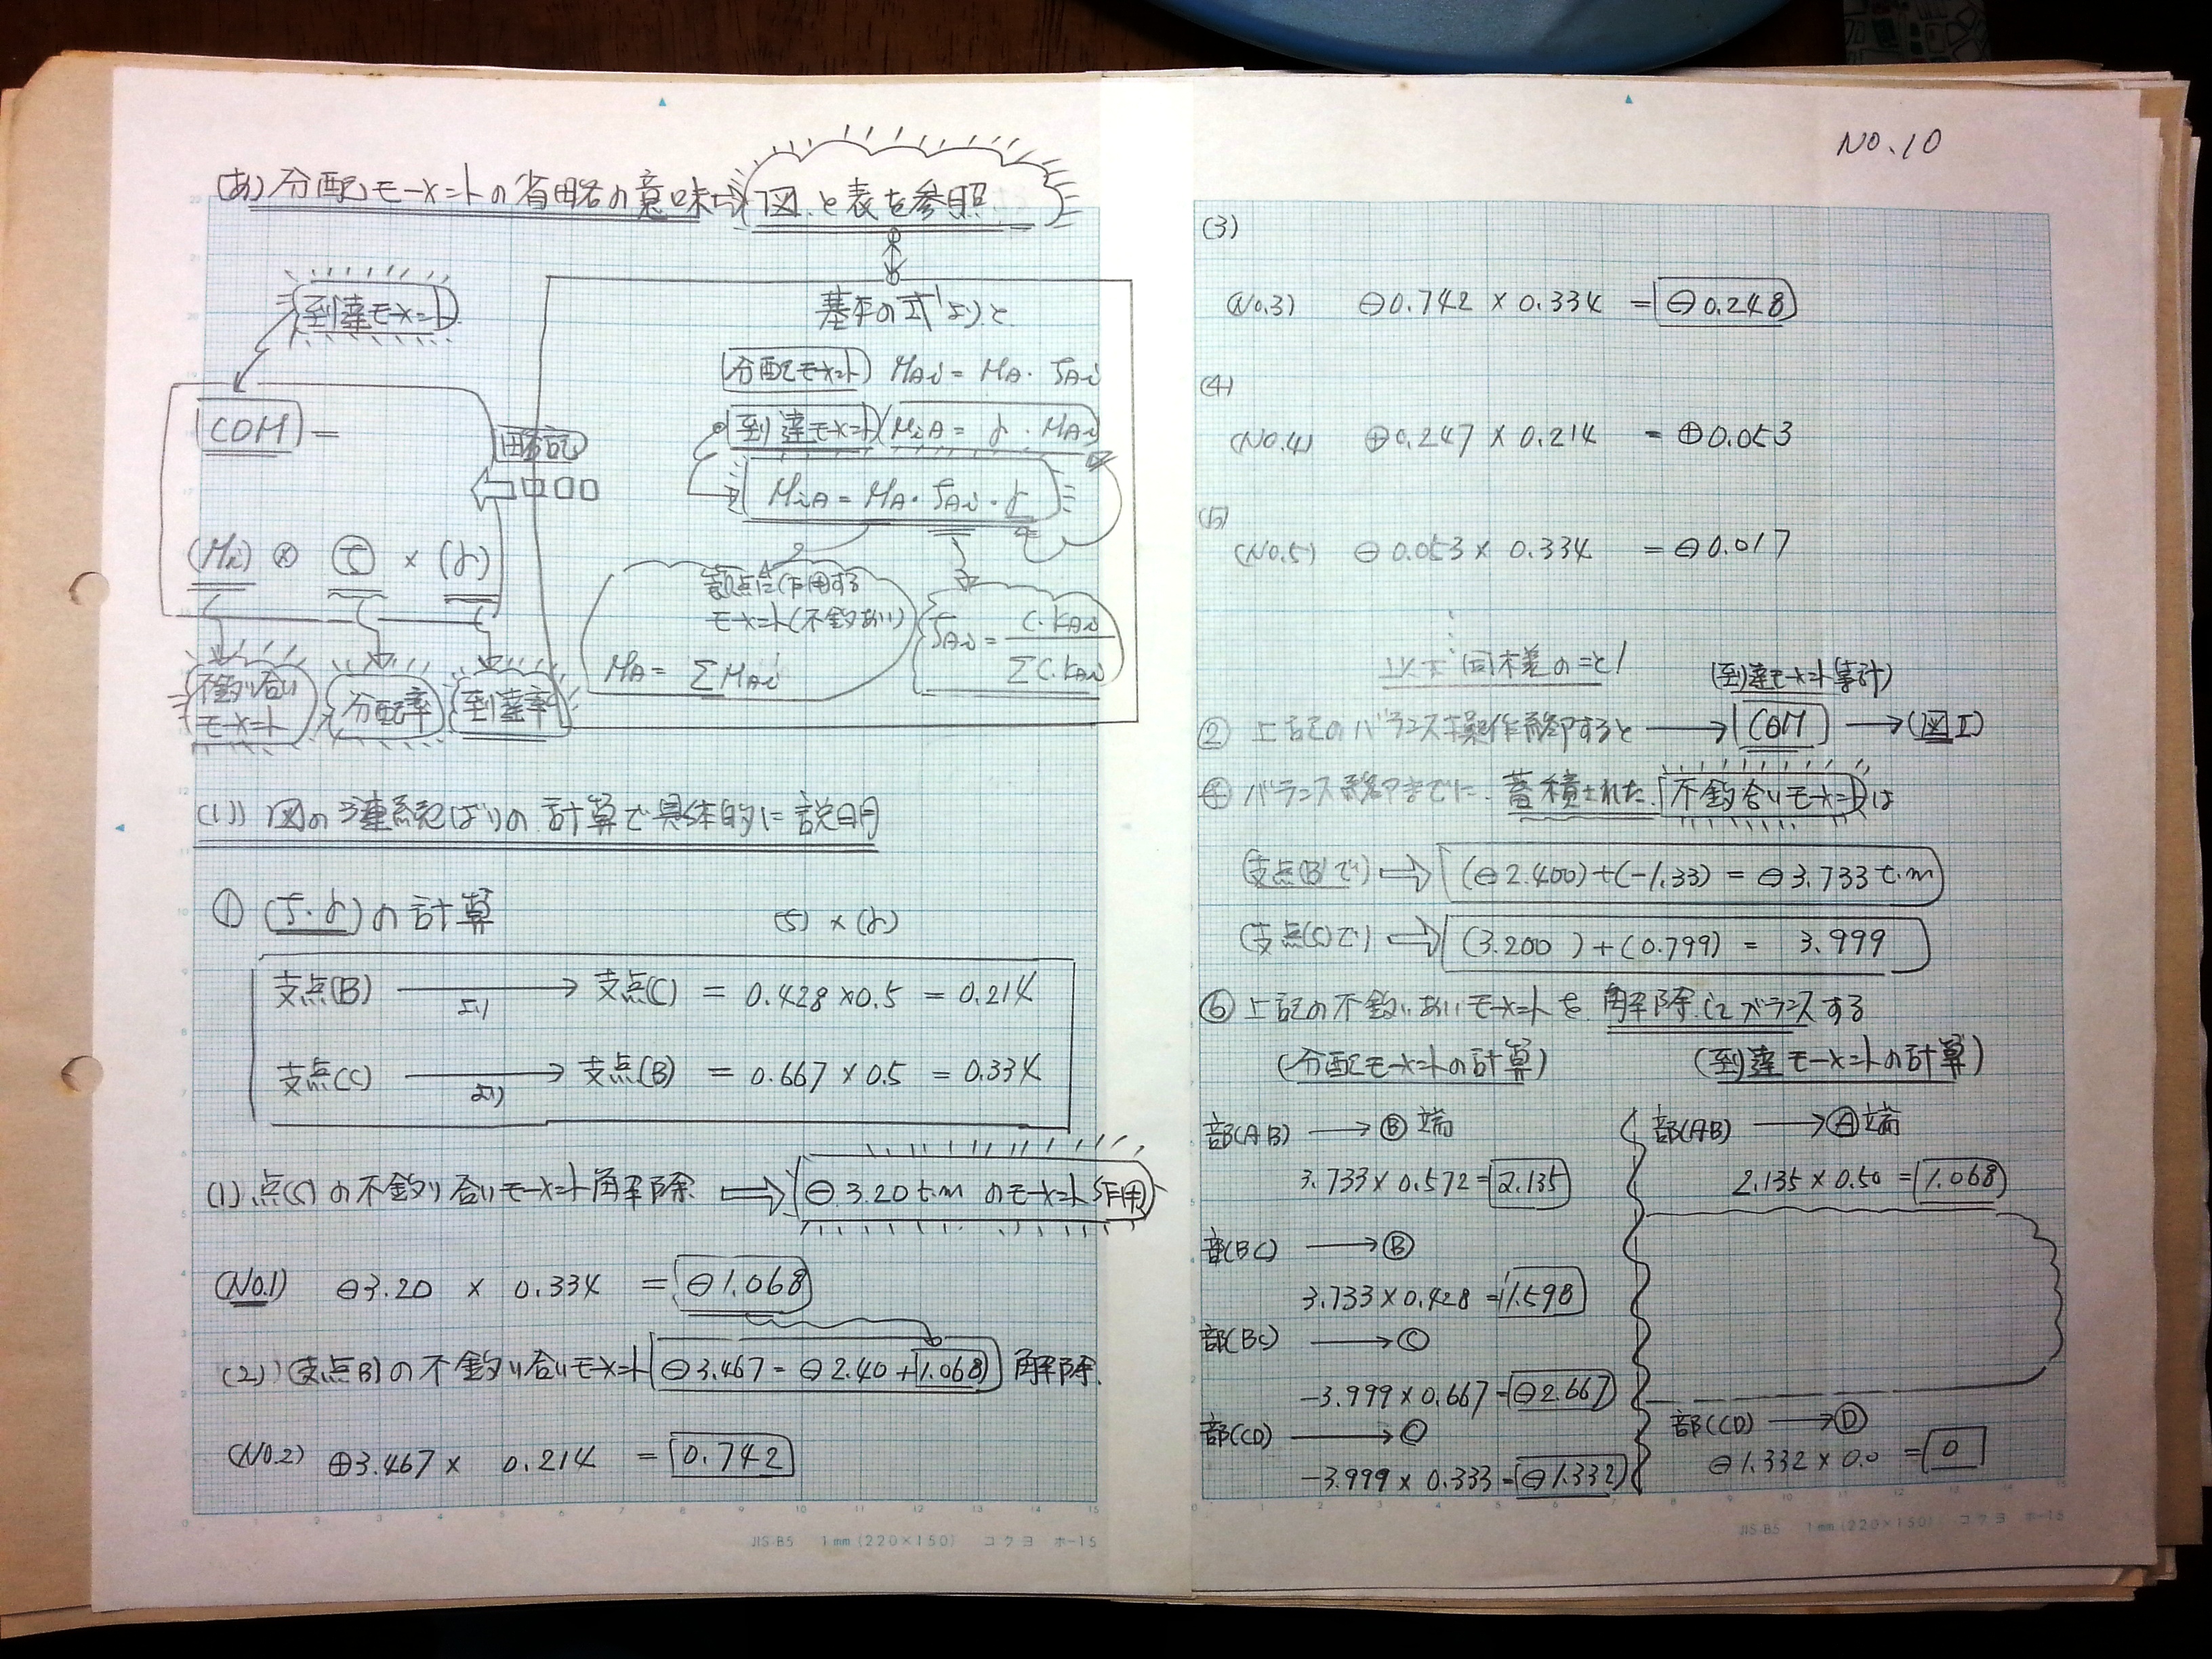 (あ) 分配モーメントの省略の意味→ 図.と表を参照
到達モーメント
基本の式より
分配モーメント MAi = MA・ζAi
到達モーメント MiA = γ・MAi
COM =
略記
MiA = MA・ζAi・γ
(Mi) ⊗ ζ × (γ)
節点に作用する
モーメント(不釣あい)
MA = ΣMAi
ζAi = C・KAi / ΣC・KAi
不釣り合いモーメント × 分配率 × 到達率
(1)) 図の3連続ばりの計算で具体的に説明
① (ζ・γ)の計算 (ζ) × (γ)
支点(B) より → 支点(C) = 0.428×0.5 = 0.214
支点(C) より → 支点(B) = 0.667×0.5 = 0.334
(1).点(C)の不釣り合いモーメント解除 ⇒ ⊖3.20t.mのモーメント作用
(No.1) ⊖3.20 × 0.334 = ⊖1.068
(2))(支点B)の不釣り合いモーメント ⊖3.467 = ⊖2.40 + 1.068) 解除.
(No.2) ⊕3.467 × 0.214 = 0.742
JIS-B5 1mm (220×150) コクヨ ホ-15
NO.10
(3)
(No.3) ⊖0.742 × 0.334 = ⊖0.248
(4)
(No.4) ⊕0.247 × 0.214 = ⊕0.053
(5)
(No.5) ⊖0.053 × 0.334 = ⊖0.017
以下同様のこと!
(到達モーメント集計)
② 上記のバランス操作終了すると → COM → (図I)
バランス終了までに.蓄積された.不釣合いモーメントは
(支点(B)で) ⇒ (⊖2.400)+(-1.33) = ⊖3.733t.m
(支点(C)で) ⇒ (3.200)+(0.799) = 3.999
⑥ 上記の不釣りあいモーメントを解除してバランスする
(分配モーメントの計算) (到達モーメントの計算)
部(AB) → Ⓑ端 部(AB) → Ⓐ端
3.733×0.572 = 2.135 2.135×0.50 = 1.068
部(BC) → Ⓑ
3.733×0.428 = 1.598
部(BC) → Ⓒ
-3.999×0.667 = ⊖2.667
部(CD) → Ⓒ 部(CD) → Ⓓ
-3.999×0.333 = ⊖1.332 ⊖1.332×0.0 = 0
JIS-B5 1mm (220×150) コクヨ ホ-15